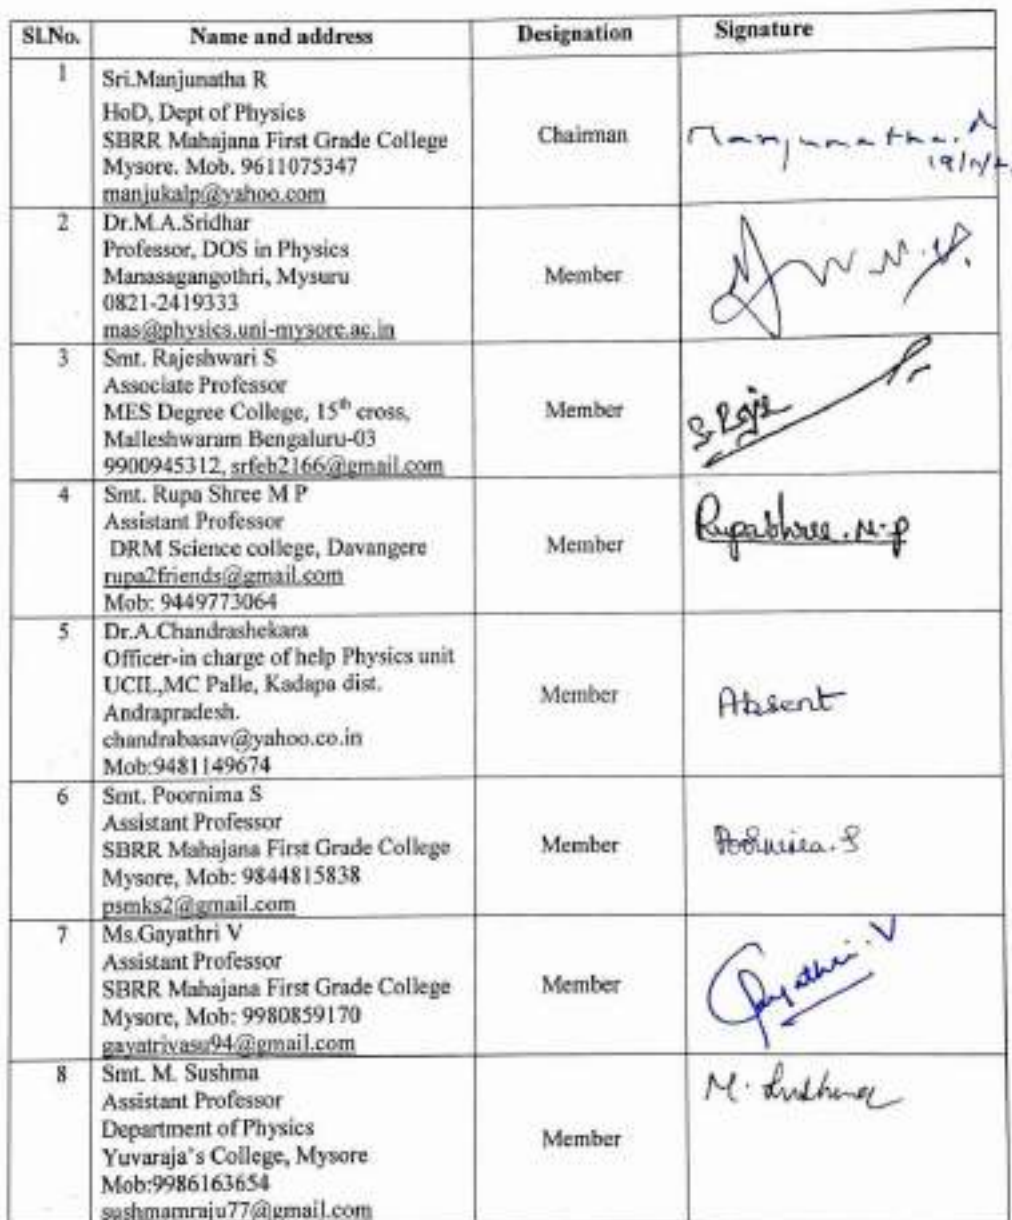 Sl.No. Name and address Designation Signature
1 Sri.Manjunatha R
HoD, Dept of Physics
SBRR Mahajana First Grade College
Mysore. Mob. 9611075347
manjukalp@yahoo.com
Chairman
Manjunatha. R
2 Dr.M.A.Sridhar
Professor, DOS in Physics
Manasagangothri, Mysuru
0821-2419333
mas@physics.uni-mysore.ac.in
Member
3 Smt. Rajeshwari S
Associate Professor
MES Degree College, 15th cross,
Malleshwaram Bengaluru-03
9900945312, srfeb2166@gmail.com
Member
4 Smt. Rupa Shree M P
Assistant Professor
DRM Science college, Davangere
rupa2friends@gmail.com
Mob: 9449773064
Member
Rupashree. M.P
5 Dr.A.Chandrashekara
Officer-in charge of help Physics unit
UCIL,MC Palle, Kadapa dist.
Andrapradesh.
chandrabasav@yahoo.co.in
Mob:9481149674
Member
Absent
6 Smt. Poornima S
Assistant Professor
SBRR Mahajana First Grade College
Mysore, Mob: 9844815838
psmks2@gmail.com
Member
Poornima. S
7 Ms.Gayathri V
Assistant Professor
SBRR Mahajana First Grade College
Mysore, Mob: 9980859170
gayatrivasu94@gmail.com
Member
Gayathri. V
8 Smt. M. Sushma
Assistant Professor
Department of Physics
Yuvaraja's College, Mysore
Mob:9986163654
sushmamraju77@gmail.com
Member
M. Sushma